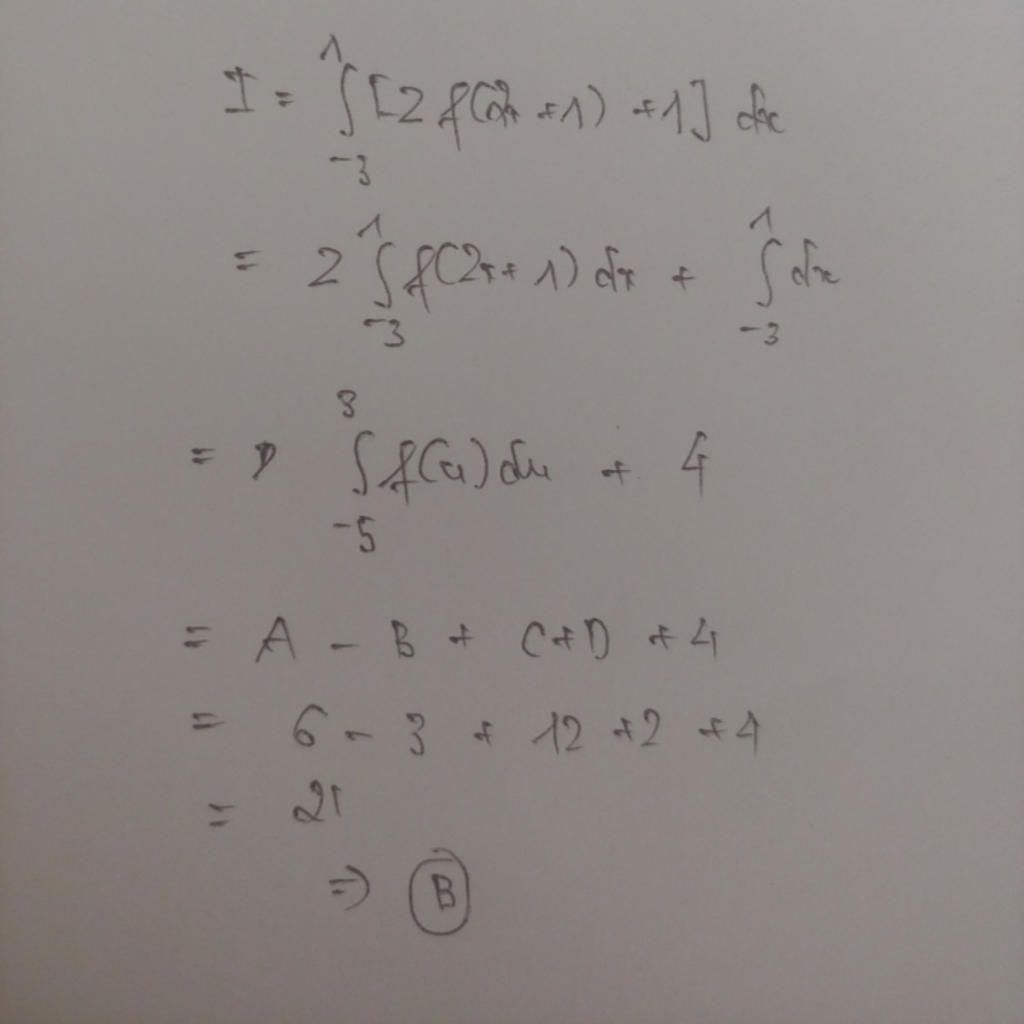 I = ∫_{-3}^{1} [2 f(2x + 1) + 1] dx
= 2 ∫_{-3}^{1} f(2x + 1) dx + ∫_{-3}^{1} dx
= ∫_{-5}^{3} f(u) du + 4
= A - B + C + D + 4
= 6 - 3 + 12 + 2 + 4
= 21
⇒ B